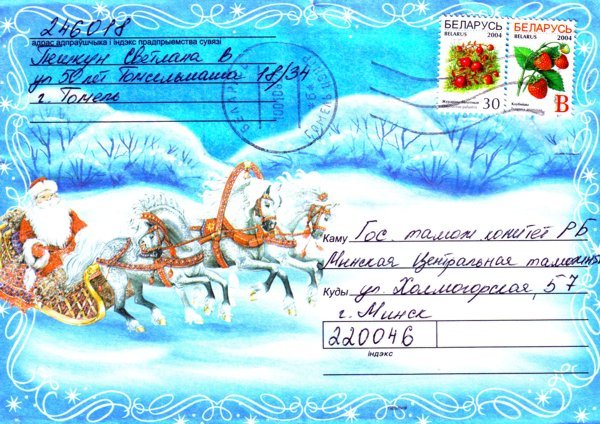 246018
адрас адпраўшчыка і індэкс прадпрыемства сувязі
Пешкун Светлана В.
ул 50 лет Гомсельмаша 18/34
г. Гомель
БЕЛАРУСЬ
BELARUS 2004
30
БЕЛАРУСЬ
BELARUS 2004
B
Каму Гос. тамож комитет РБ
Минская Центральная таможня
Куды ул. Холмогорская, 57
г. Минск
220046
індэкс